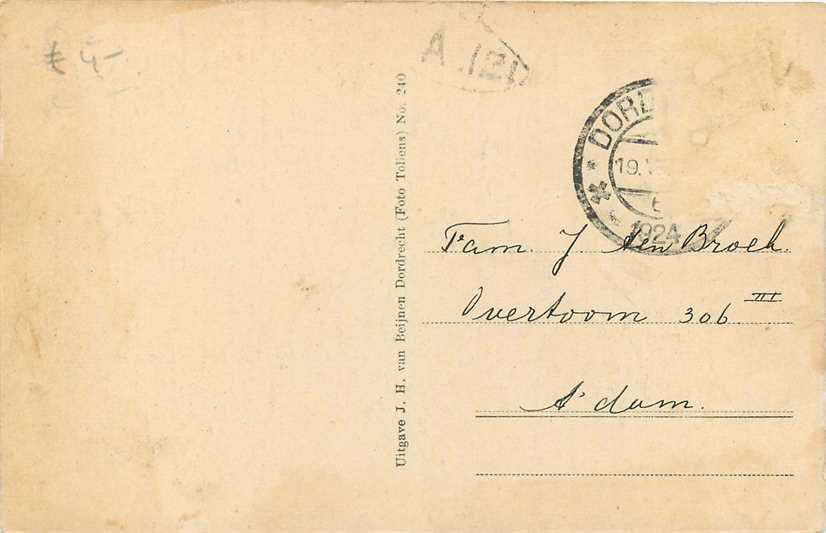 € 4,-
A 121
DORD
19.V
1924
Uitgave J. H. van Beijnen Dordrecht (Foto Tollens) No. 240
Fam. J. den Broek.
Overtoom 306 III
A'dam.